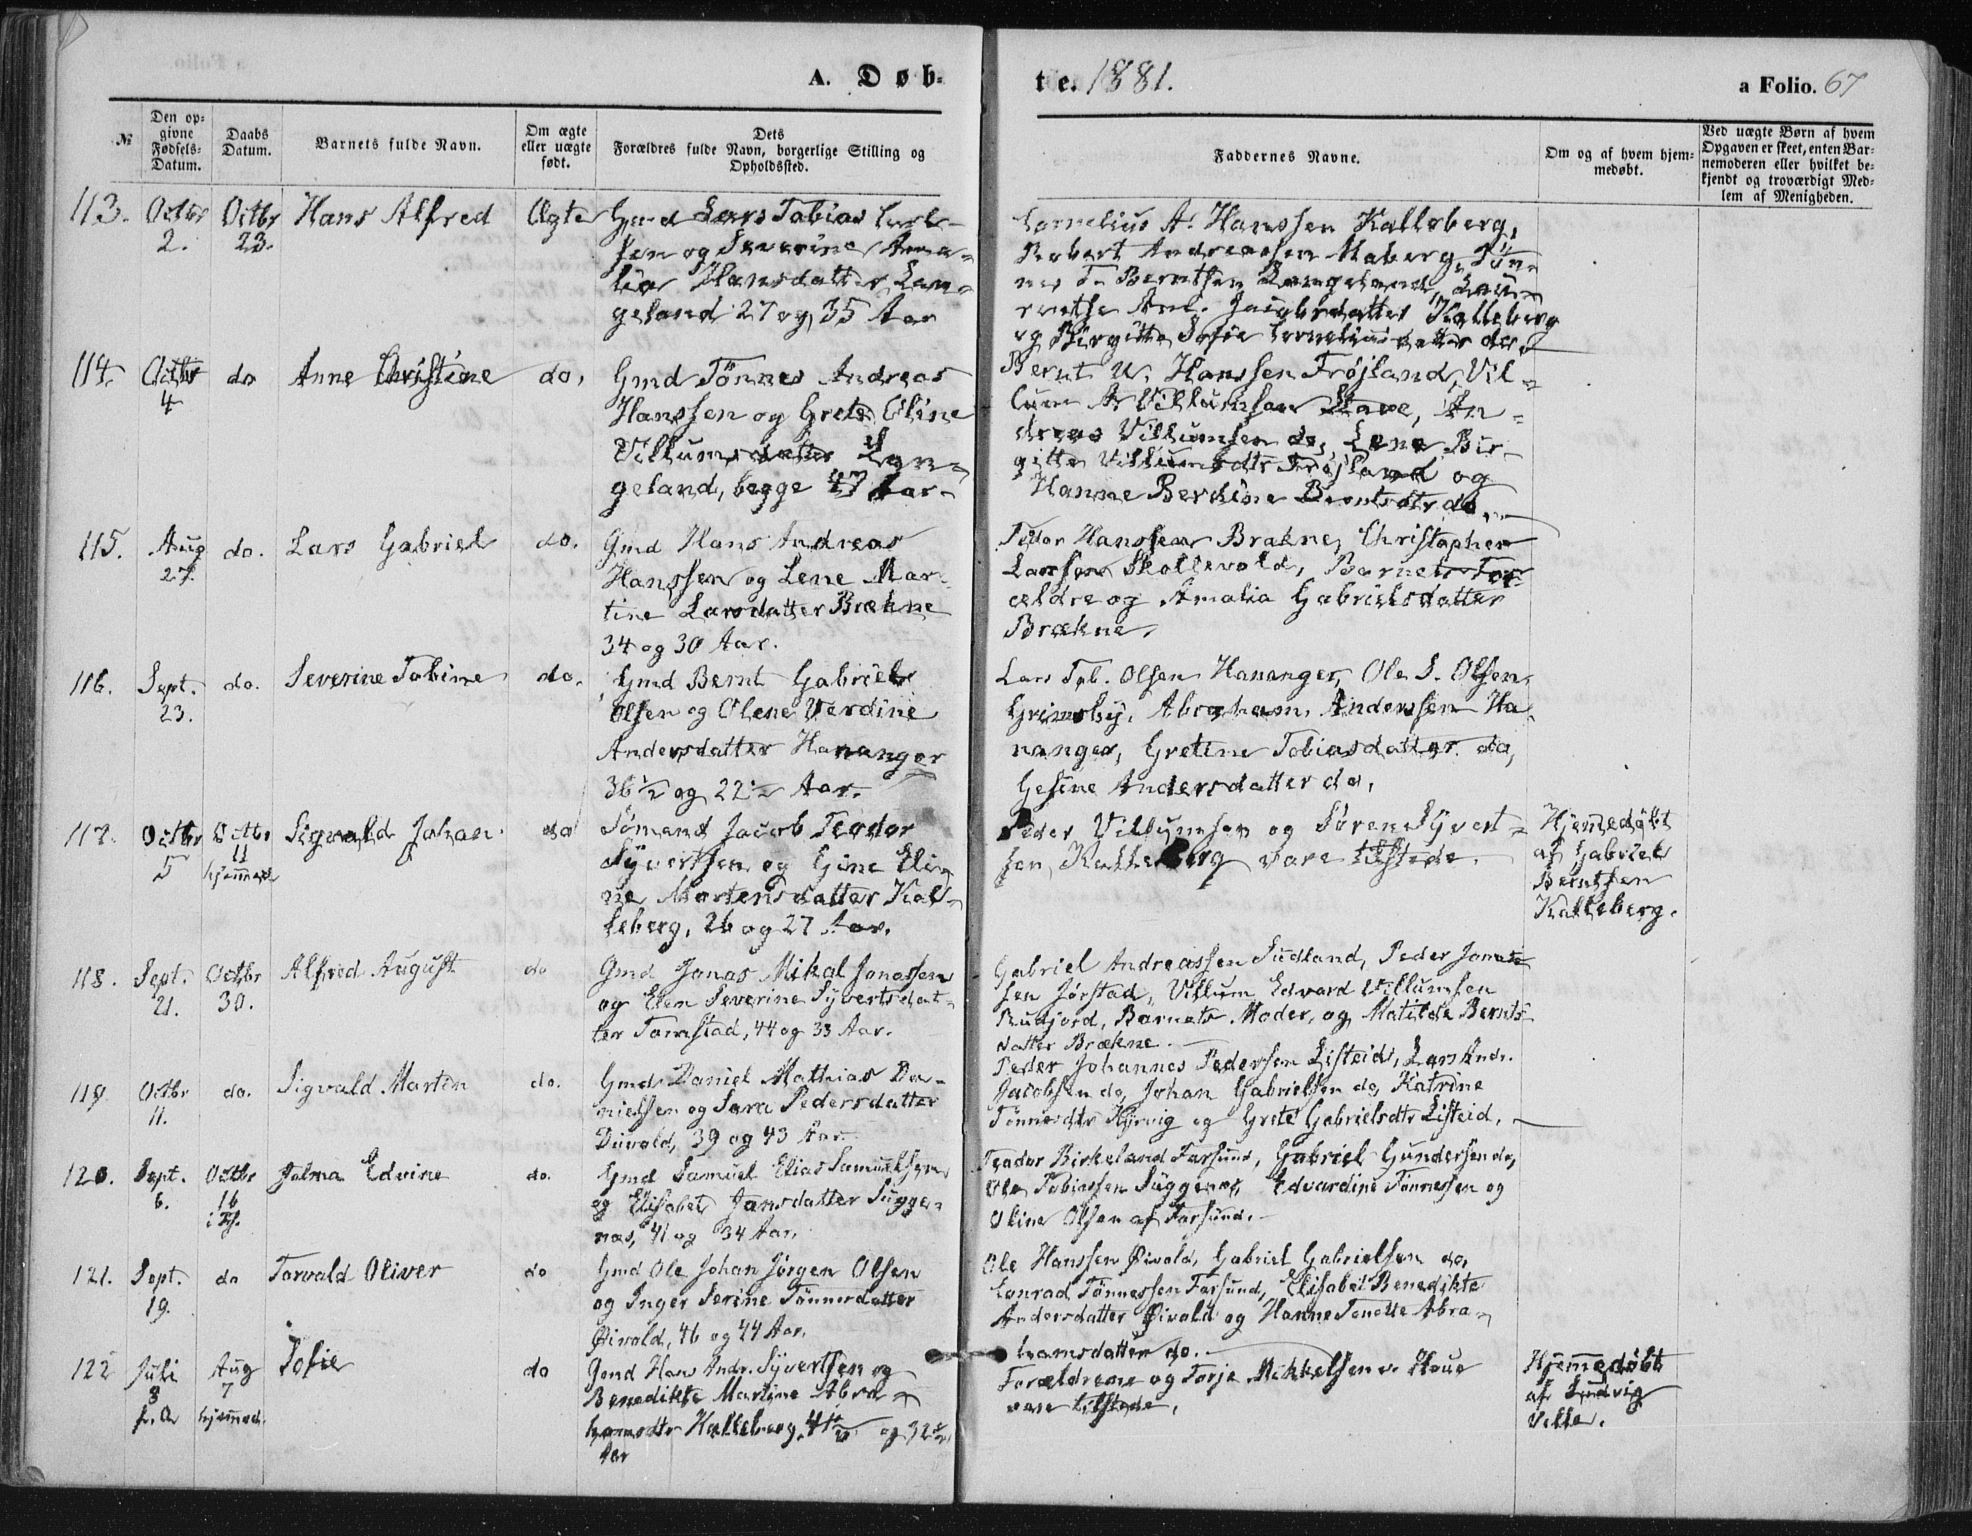 A. Døb-
te. 1881.
a Folio. 67
№
Den op-
givne
Fødsels-
Datum.
Daabs
Datum.
Barnets fulde Navn.
Om ægte
eller uægte
født.
Dets
Forældres fulde Navn, borgerlige Stilling og
Opholdssted.
Faddernes Navne.
Om og af hvem hjem-
medøbt.
Ved uægte Børn af hvem
Opgaven er skeet, enten Bar-
nemoderen eller hvilket be-
kjendt og troværdigt Med-
lem af Menigheden.
113. Octbr 2. Octbr 23. Hans Alfred Ægte
Gmd Lars Tobias Carl-
sen og Severine Ama-
lia Hansdatter, Lan-
geland 27 og 35 Aar
Cornelius A. Hanssen Kalleberg,
Robert Andreassen Maberg, Tøn-
nes T. Berntsen Langeland, Lau-
rentse Jacobsdatter Kalleberg
og Birgitte Sofie Corneliusdatter do.
114. Octbr 4 do Anne Christine do.
Gmd Tönnes Andreas
Hanssen og Grete Eline
Villumsdatter Lan-
geland, begge 47 Aar.
Bernt W. Hanssen Frøjland, Vil-
lum A. Villumsen Stave, An-
dreas Villumsen do, Lene Bir-
gitte Villumsdtr Frøjland og
Hanne Berthine Berntsdtr do.
115. Aug 27. do. Lars Gabriel do.
Gmd Hans Andreas
Hanssen og Lene Mar-
tine Larsdatter Brækne
34 og 30 Aar.
Peder Hanssen Brækne, Christopher
Larsen Skollevold, Barnets For-
ældre og Amalia Gabrielsdatter
Brækne.
116. Sept. 23. do. Severine Tobine do.
Gmd Bernt Gabriel
Olsen og Olene Verdine
Andersdatter Hananger
36 ½ og 22 ½ Aar.
Lars Tob. Olsen Hananger, Ole S. Olsen
Grimsby, Abraham Anderssen Ha-
nanger, Gretine Tobiasdatter do,
Gesine Andersdatter do.
117. Octbr 5 Octbr 11 hjemmed. Sigvald Johan do
Sömand Jacob Teodor
Syvertsen og Gine Eli-
ne Mortensdatter Kal-
leberg, 26 og 27 Aar.
Peder Villumsen og Søren Syvert-
sen Kalleberg vare tilstede.
Hjemmedøbt
af Gabriel
Berntsen
Kalleberg.
118. Sept. 21. Octbr 30. Alfred August do
Gmd Jonas Mikal Jonassen
og Elen Severine Syvertsdat-
ter Tomstad, 44 og 33 Aar.
Gabriel Andreassen Sudland, Peder Jonas-
sen Jørstad, Villum Edvard Villumsen
Rudjord, Barnets Moder, og Matilde Bernts-
datter Brækne.
119. Octbr 11. do. Sigvald Martin do.
Gmd Daniel Mathias Da-
nielsen og Sara Pedersdatter
39 og 43 Aar.
Peder Johannes Pedersen Listeid, Lars Andr.
Jacobsen do, Johan Gabrielsen do, Katrine
Tønnesdtr og Grete Gabrielsdtr Listeid.
120. Sept. 6. Octbr 16 i Fs. Jalma Edvine do.
Gmd Samuel Elias Samuelsen
og Elisabet Jansdatter Sugge-
nas, 41 og 34 Aar.
Teodor Birkeland Farsund, Gabriel Gundersen do,
Ole Tobiassen Suggenas, Edvardine Tönnessen og
Oline Olsen af Farsund.
121. Sept. 19. do Torvald Oliver do
Gmd Ole Johan Jørgen Olsen
og Inger Serine Tönnesdatter
Øivold, 46 og 44 Aar.
Ole Hanssen Øivold, Gabriel Gabrielsen do,
Conrad Tönnessen Farsund, Elisabet Benedikte
Andersdatter Øivold og Hanne Tonette Abra-
hamsdatter do.
122 Juli 8 Aug 7 hjemmed. Sofie do
Gmd Hans Andr. Syvertsen og
Benedikte Martine Abra-
hamsdtr Kalleberg, 41 og 32
Aar
Forældrene og Torje Mikkelsen Haue
vare tilstede.
Hjemmedøbt
af Ludvig
Ville.